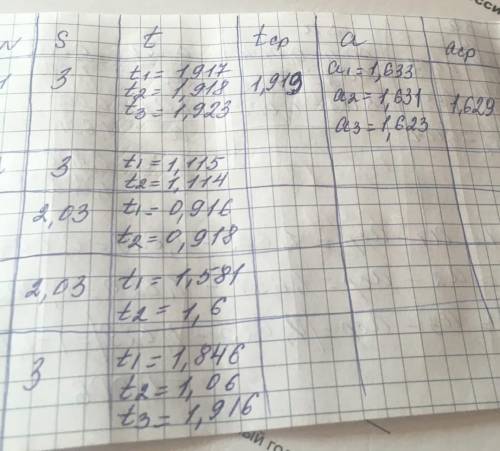 N S t tср a aср
3 t1 = 1,917 1,919 a1 = 1,633 1,629
t2 = 1,918 a2 = 1,631
t3 = 1,923 a3 = 1,623
3 t1 = 1,115
t2 = 1,114
2,03 t1 = 0,916
t2 = 0,918
2,03 t1 = 1,581
t2 = 1,6
3 t1 = 1,846
t2 = 1,06
t3 = 1,916